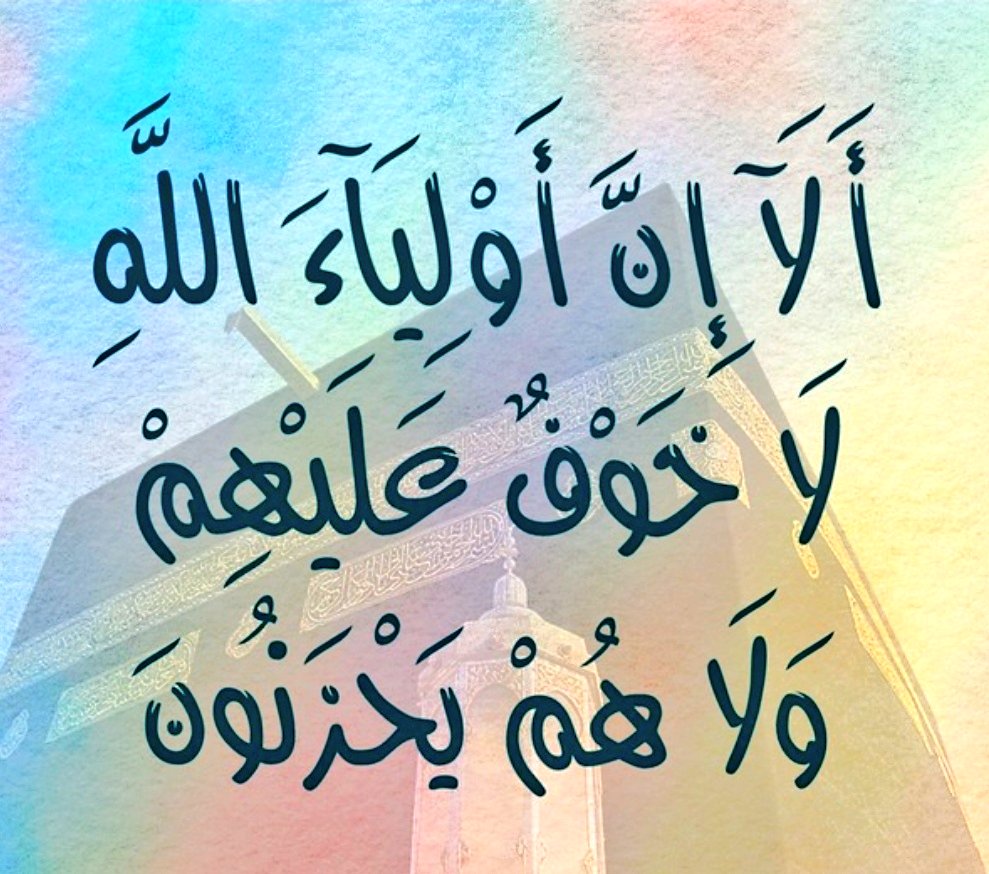 أَلَآ إِنَّ أَوْلِيَآءَ اللَّهِ
لَا خَوْفٌ عَلَيْهِمْ
وَلَا هُمْ يَحْزَنُونَ